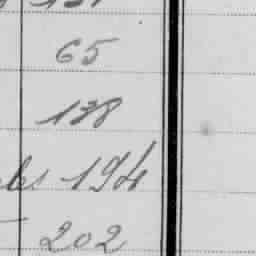 65
138
194
202